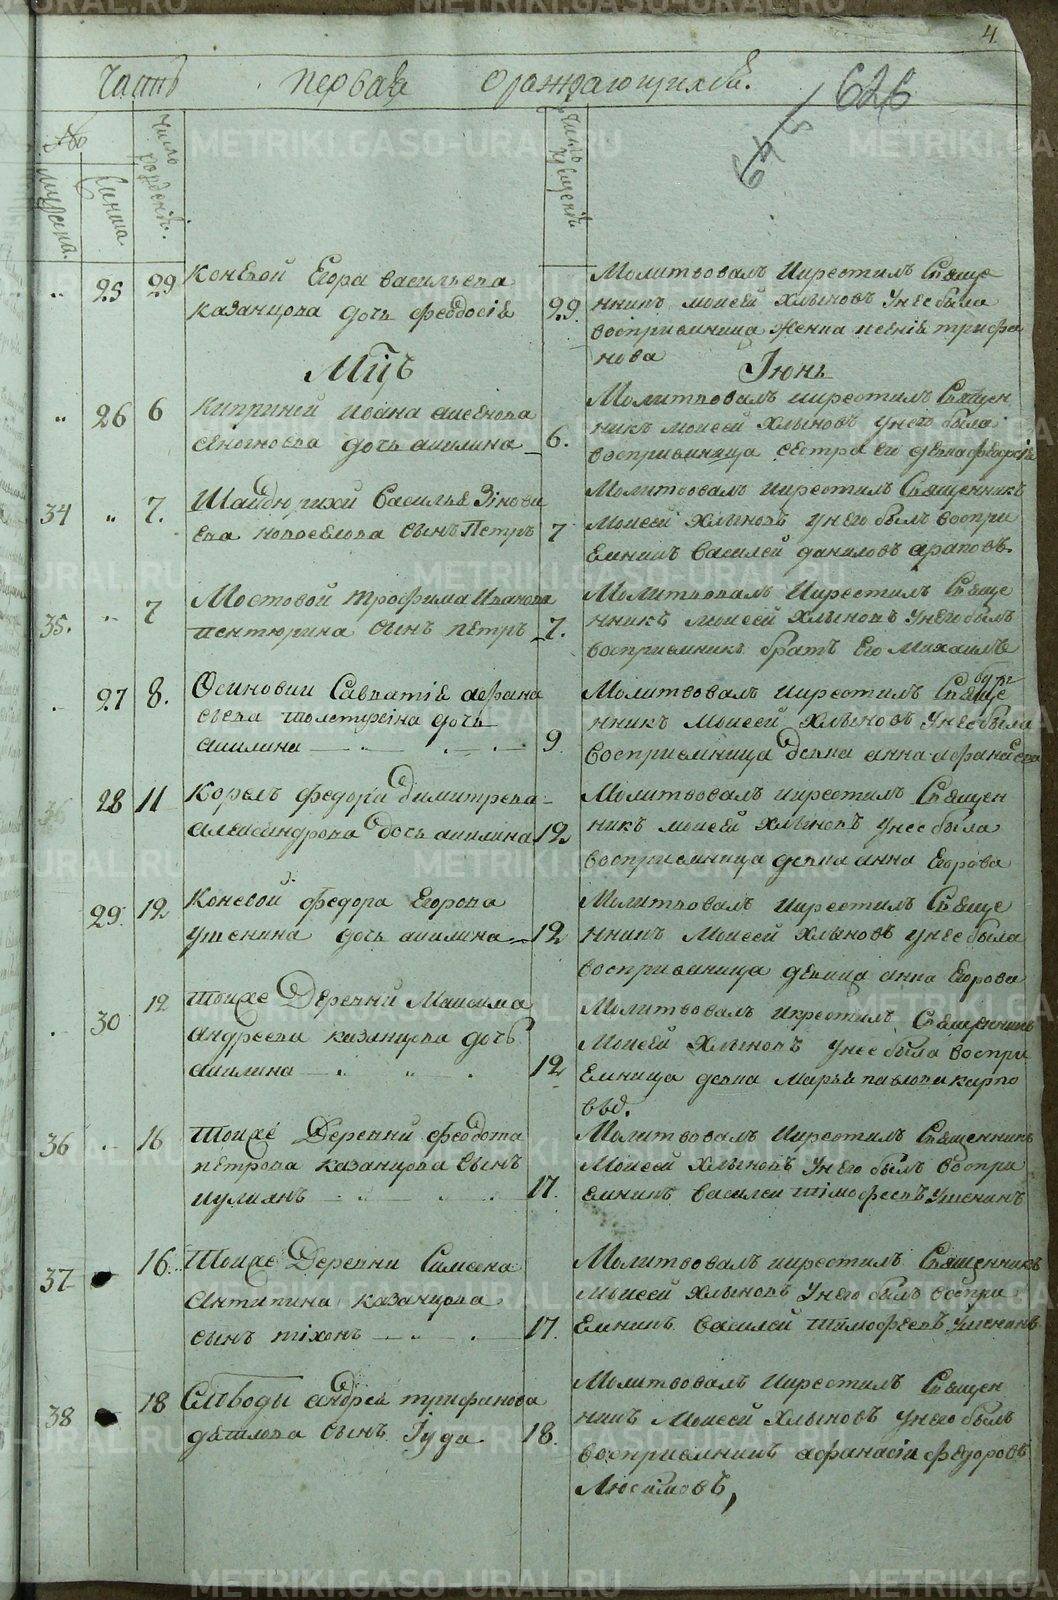 4
Часть первая ораждающихся.
626
№
Число рождения.
Число крещения
мужеска.
женска
" 25 29 Коневой Егора васильева
казанцова дочь феодосiя 29.
Молитвовалъ Икрестилъ Свяще
нникъ моисей Хлыновъ Унее была
восприемница женка ксенiя трифа
нова
Мцъ Iюнь
" 26 6 Киприной ивана аксенова
дочь акилина 6.
Молитвовалъ икрестилъ Священ
никъ моисей Хлыновъ унее была
восприемница сестра его девка
34 " 7. Василья Зинови
ева новоселова сынъ Петръ 7
Молитвовалъ икрестилъ Священникъ
Моисей Хлыновъ унего былъ воспри
емникъ Василей даниловъ араповъ.
35. " 7 Мостовой трофима Иванова
пентюрина сынъ петръ 7.
Молитвовалъ Икрестилъ Свяще
нникъ моисей Хлыновъ Унего былъ
восприемникъ братъ Его Михаилъ
27 8. Осиновки Савватiя афона
сьева дочь
акилина 9
Молитвовалъ икрестилъ Свяще
нникъ Моисей Хлыновъ Унее была
восприемница девка анна афанасьева
36 28 11 Корелъ федора димитрева
александрова дочь акилина 12
Молитвовалъ икрестилъ Священ
никъ моисей Хлыновъ унее была
восприемница девка анна Егорова
29 12 Коневой федора Егорова
ушенина дочь акилина 12
Молитвовалъ икрестилъ Свяще
нникъ Моисей Хлыновъ унее была
восприемница девица анна Егорова
30 12 тоиже Деревни Максима
андреева казанцова дочь
акилина 12
Молитвовалъ икрестилъ Священникъ
Моисей Хлыновъ унее была воспри
емница девка Марья павлова карпо
выд.
36 16 Тоиже Деревни феодота
петрова казанцова сынъ
иулианъ 17.
Молитвовалъ Икрестилъ Священникъ
Моисей Хлыновъ Унего былъ воспри
емникъ василеи тiмофеевъ Ушенинъ
37 16. Тоиже Деревни Симеона
Антипина казанцова
сынъ тiхонъ 17.
Молитвовалъ икрестилъ Священникъ
Моисей Хлыновъ Унего былъ воспри
емникъ василей тимофеевъ Ушенинъ
38 18 Слободы андреа трифанова
сынъ Iуда 18.
Молитвовалъ Икрестилъ Священ
никъ Моисей Хлыновъ унего былъ
восприемникъ афанасiи федоровъ
METRIKI.GASO-URAL.RU